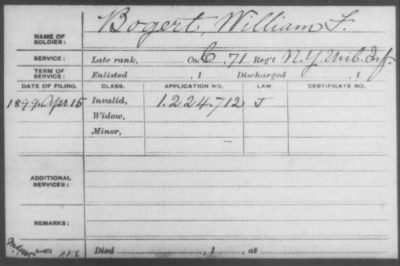 NAME OF SOLDIER: Bogert, William F.
SERVICE: Late rank, Co. C, 71 Reg't N.Y. Inf.
TERM OF SERVICE: Enlisted , 1 Discharged , 1
DATE OF FILING. CLASS. APPLICATION NO. LAW. CERTIFICATE NO.
1899 Apr 15 Invalid, 1.224.712 J
Widow,
Minor,
ADDITIONAL SERVICES:
REMARKS:
Died , 1 , at